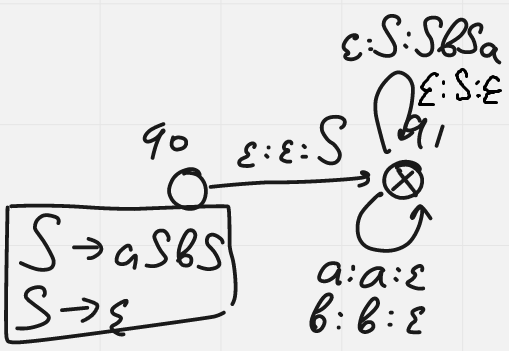 ε:S:SbSa
ε:S:ε
q0
ε:ε:S
q1
S→aSbS
S→ε
a:a:ε
b:b:ε